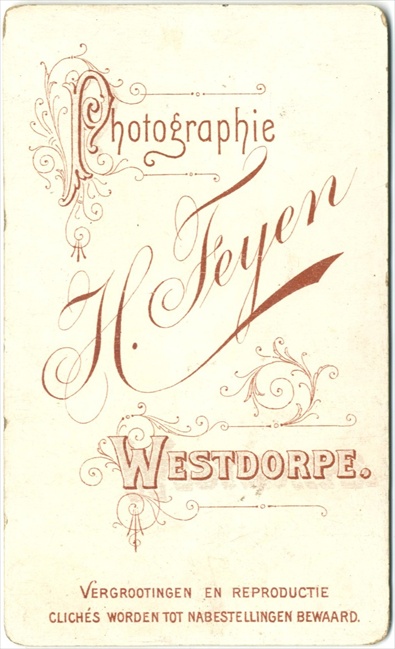 Photographie
H. Feyen
WESTDORPE.
VERGROOTINGEN EN REPRODUCTIE
CLICHÉS WORDEN TOT NABESTELLINGEN BEWAARD.